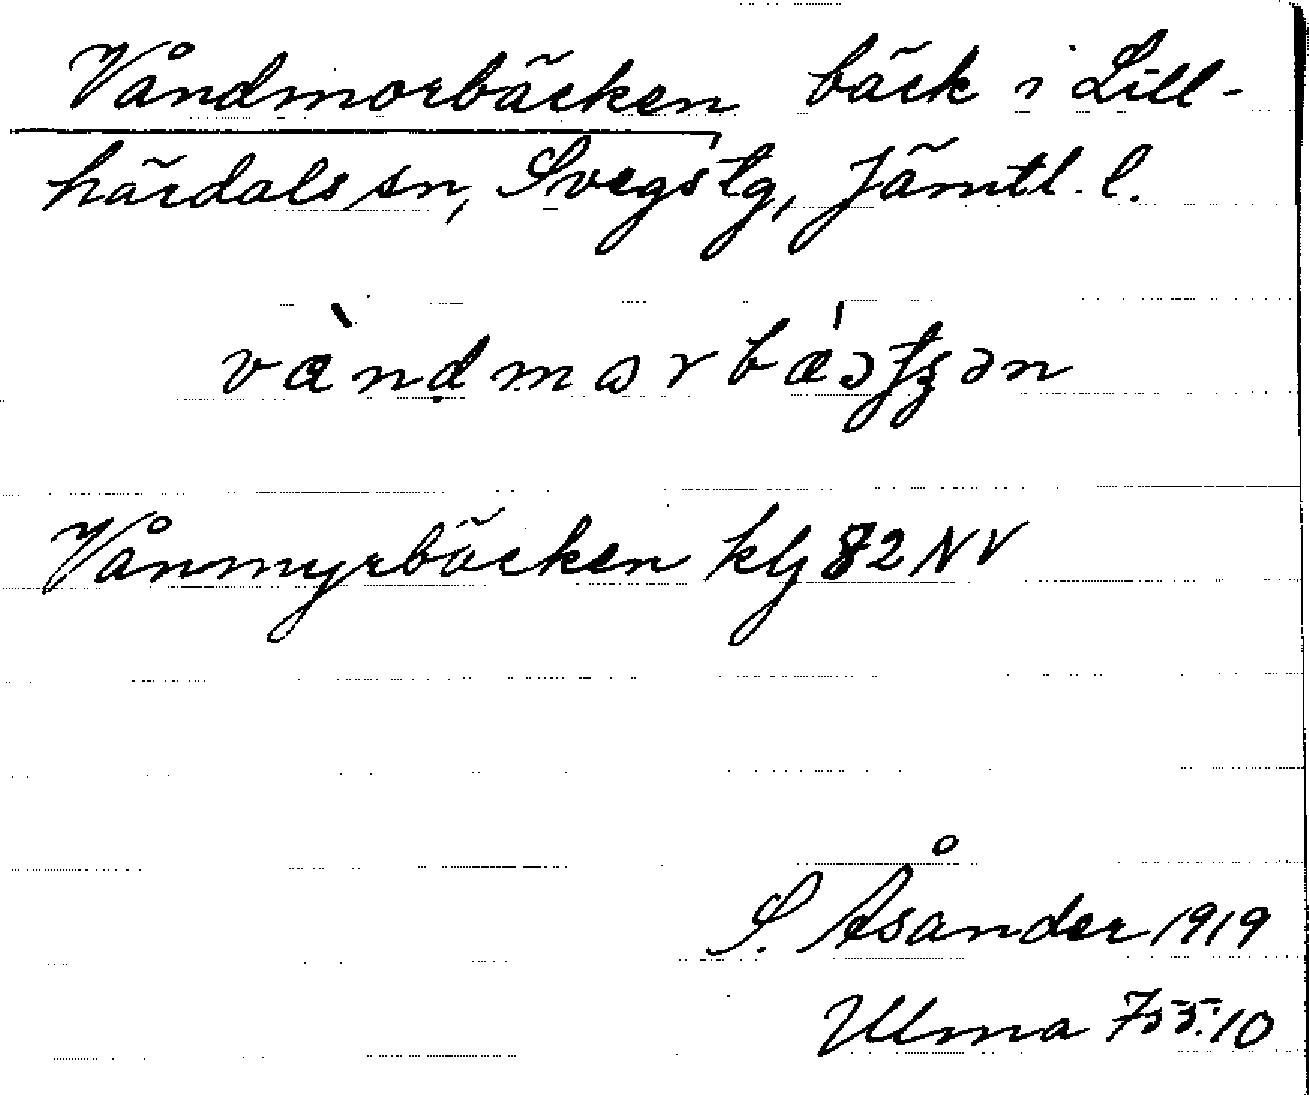 Våndmorbäcken bäck i Lill-
härdals sn, Svegs tg, Jämtl. l.
Vånmyrbäcken kbl 82 NV
S. Åsander 1919
Ulma 755:10